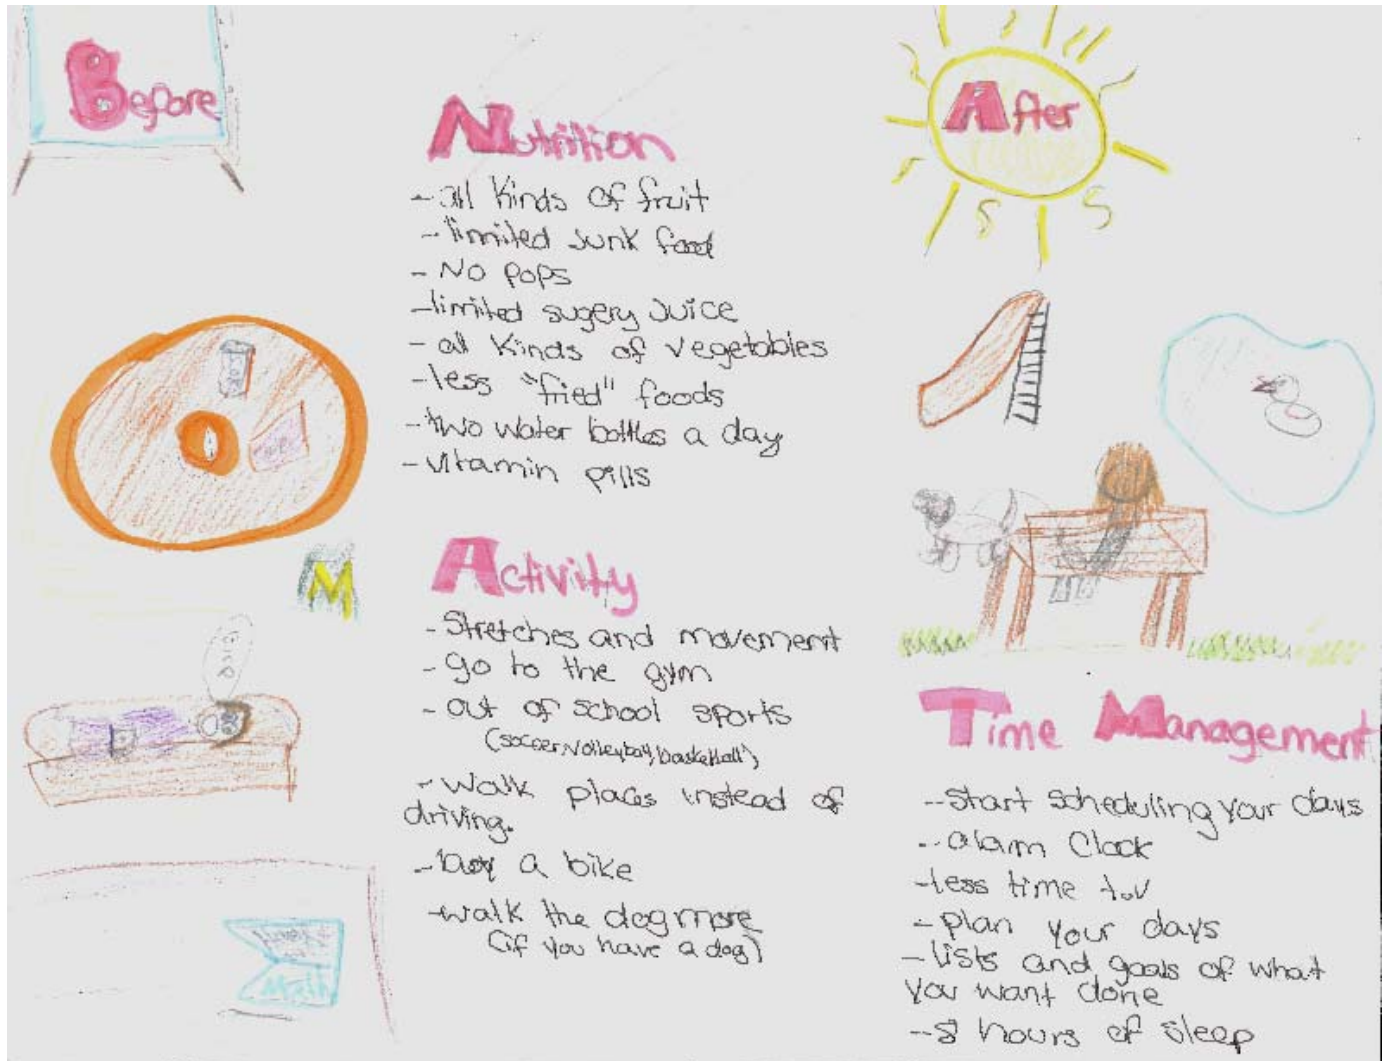 Before
Nutrition
- all kinds of fruit
- limited junk food
- No pops
- limited sugery juice
- all kinds of vegetables
- less "fried" foods
- two water bottles a day
- vitamin pills
M
Activity
- Stretches and movement
- go to the gym
- out of school sports
(soccer, volleyball, basketball)
- walk places instead of
driving.
- buy a bike
- walk the dog more
(if you have a dog)
Math
After
Time Management
- start scheduling your days
- alarm Clock
- less time t.v
- plan your days
- lists and goals of what
you want done
- 8 hours of sleep